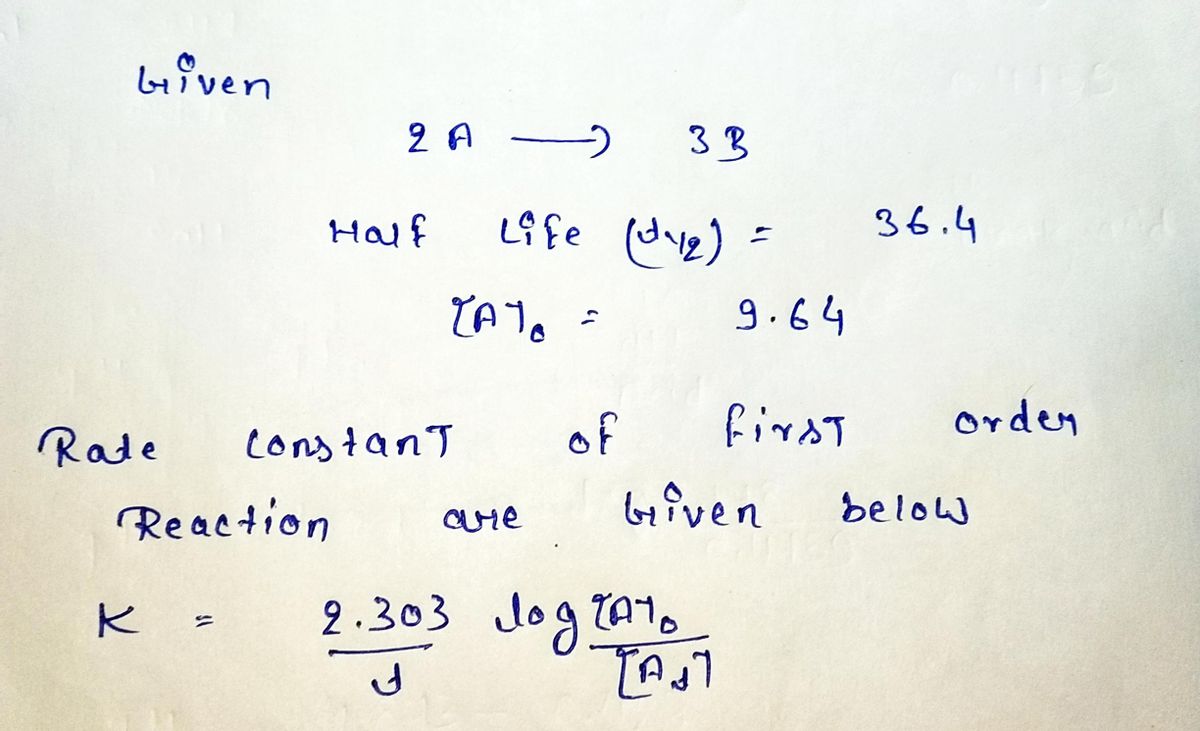 Given
2 A → 3 B
Half Life (t1/2) = 36.4
[A]0 = 9.64
Rate constant of first order
Reaction are Given below
K = 2.303/t log [A]0/[At]